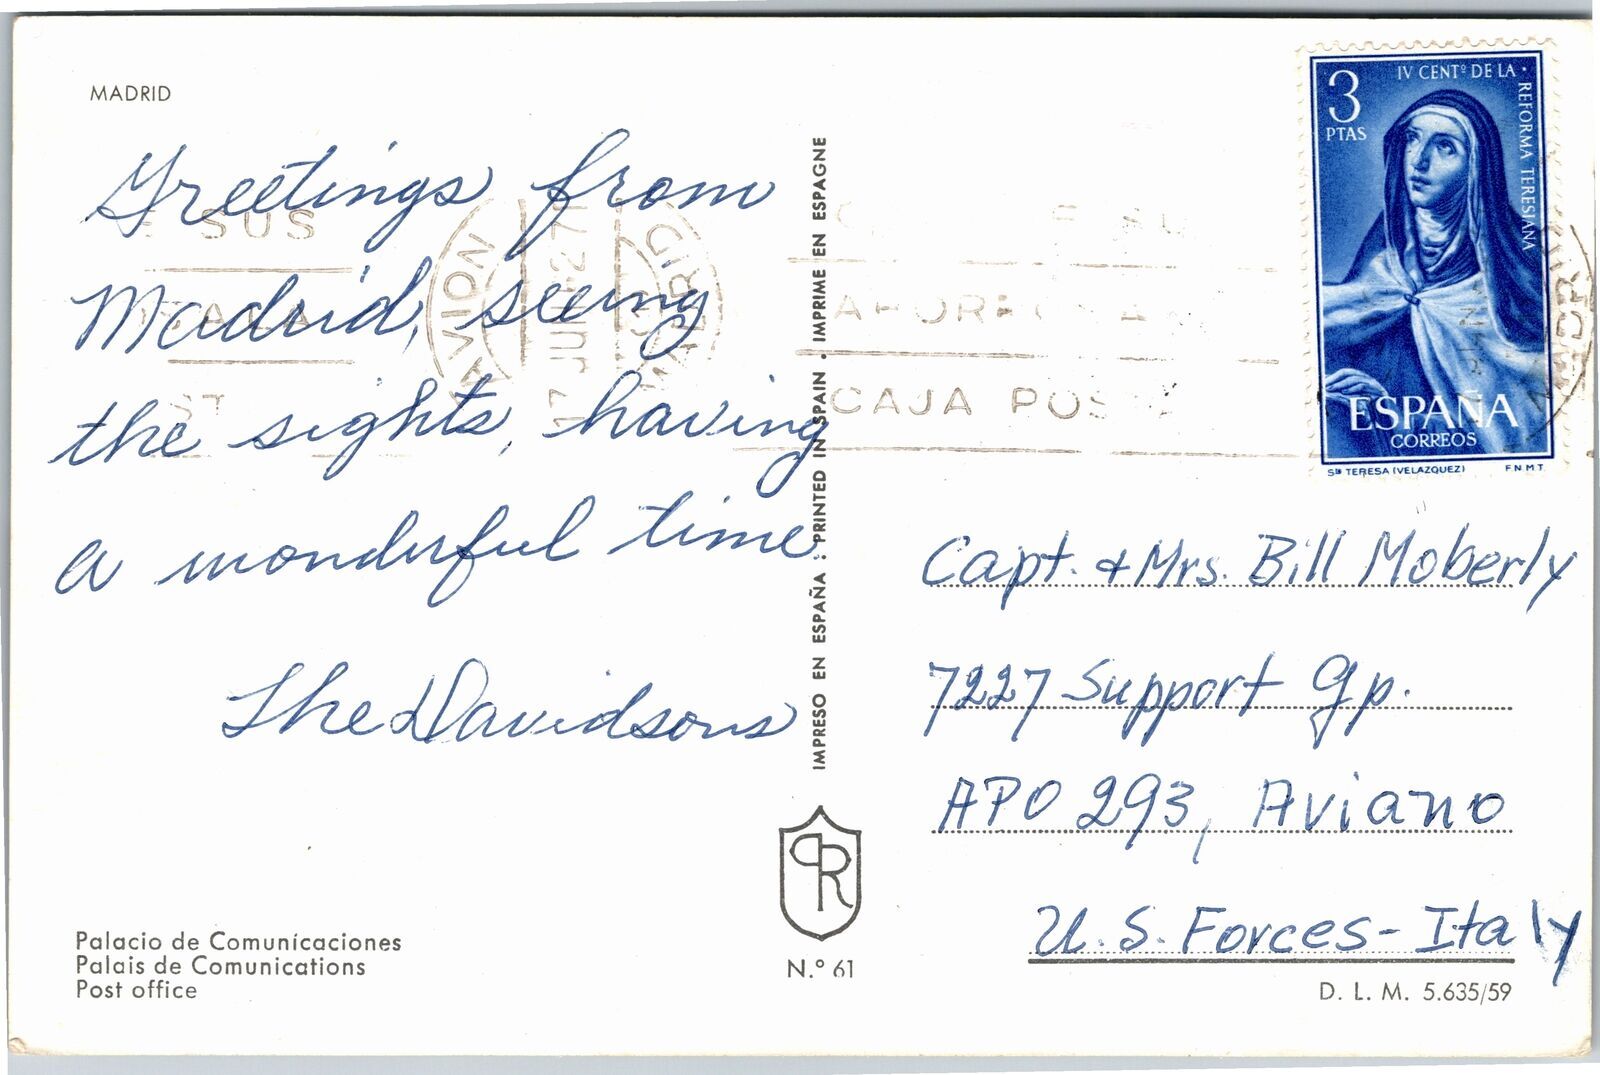 MADRID
Greetings from
Madrid, seeing
the sights, having
a wonderful time
The Davidsons
Palacio de Comunicaciones
Palais de Comunications
Post office
IMPRESO EN ESPAÑA · PRINTED IN SPAIN · IMPRIME EN ESPAGNE
PR
N.º 61
SUS
AVION
MADRID
CAJA
3
PTAS
IV CENTº DE LA · REFORMA TERESIANA
ESPAÑA
CORREOS
Sta TERESA (VELAZQUEZ)
F.N.M.T.
Capt. & Mrs. Bill Moberly
7227 Support Gp.
APO 293, Aviano
U.S. Forces - Italy
D. L. M. 5.635/59